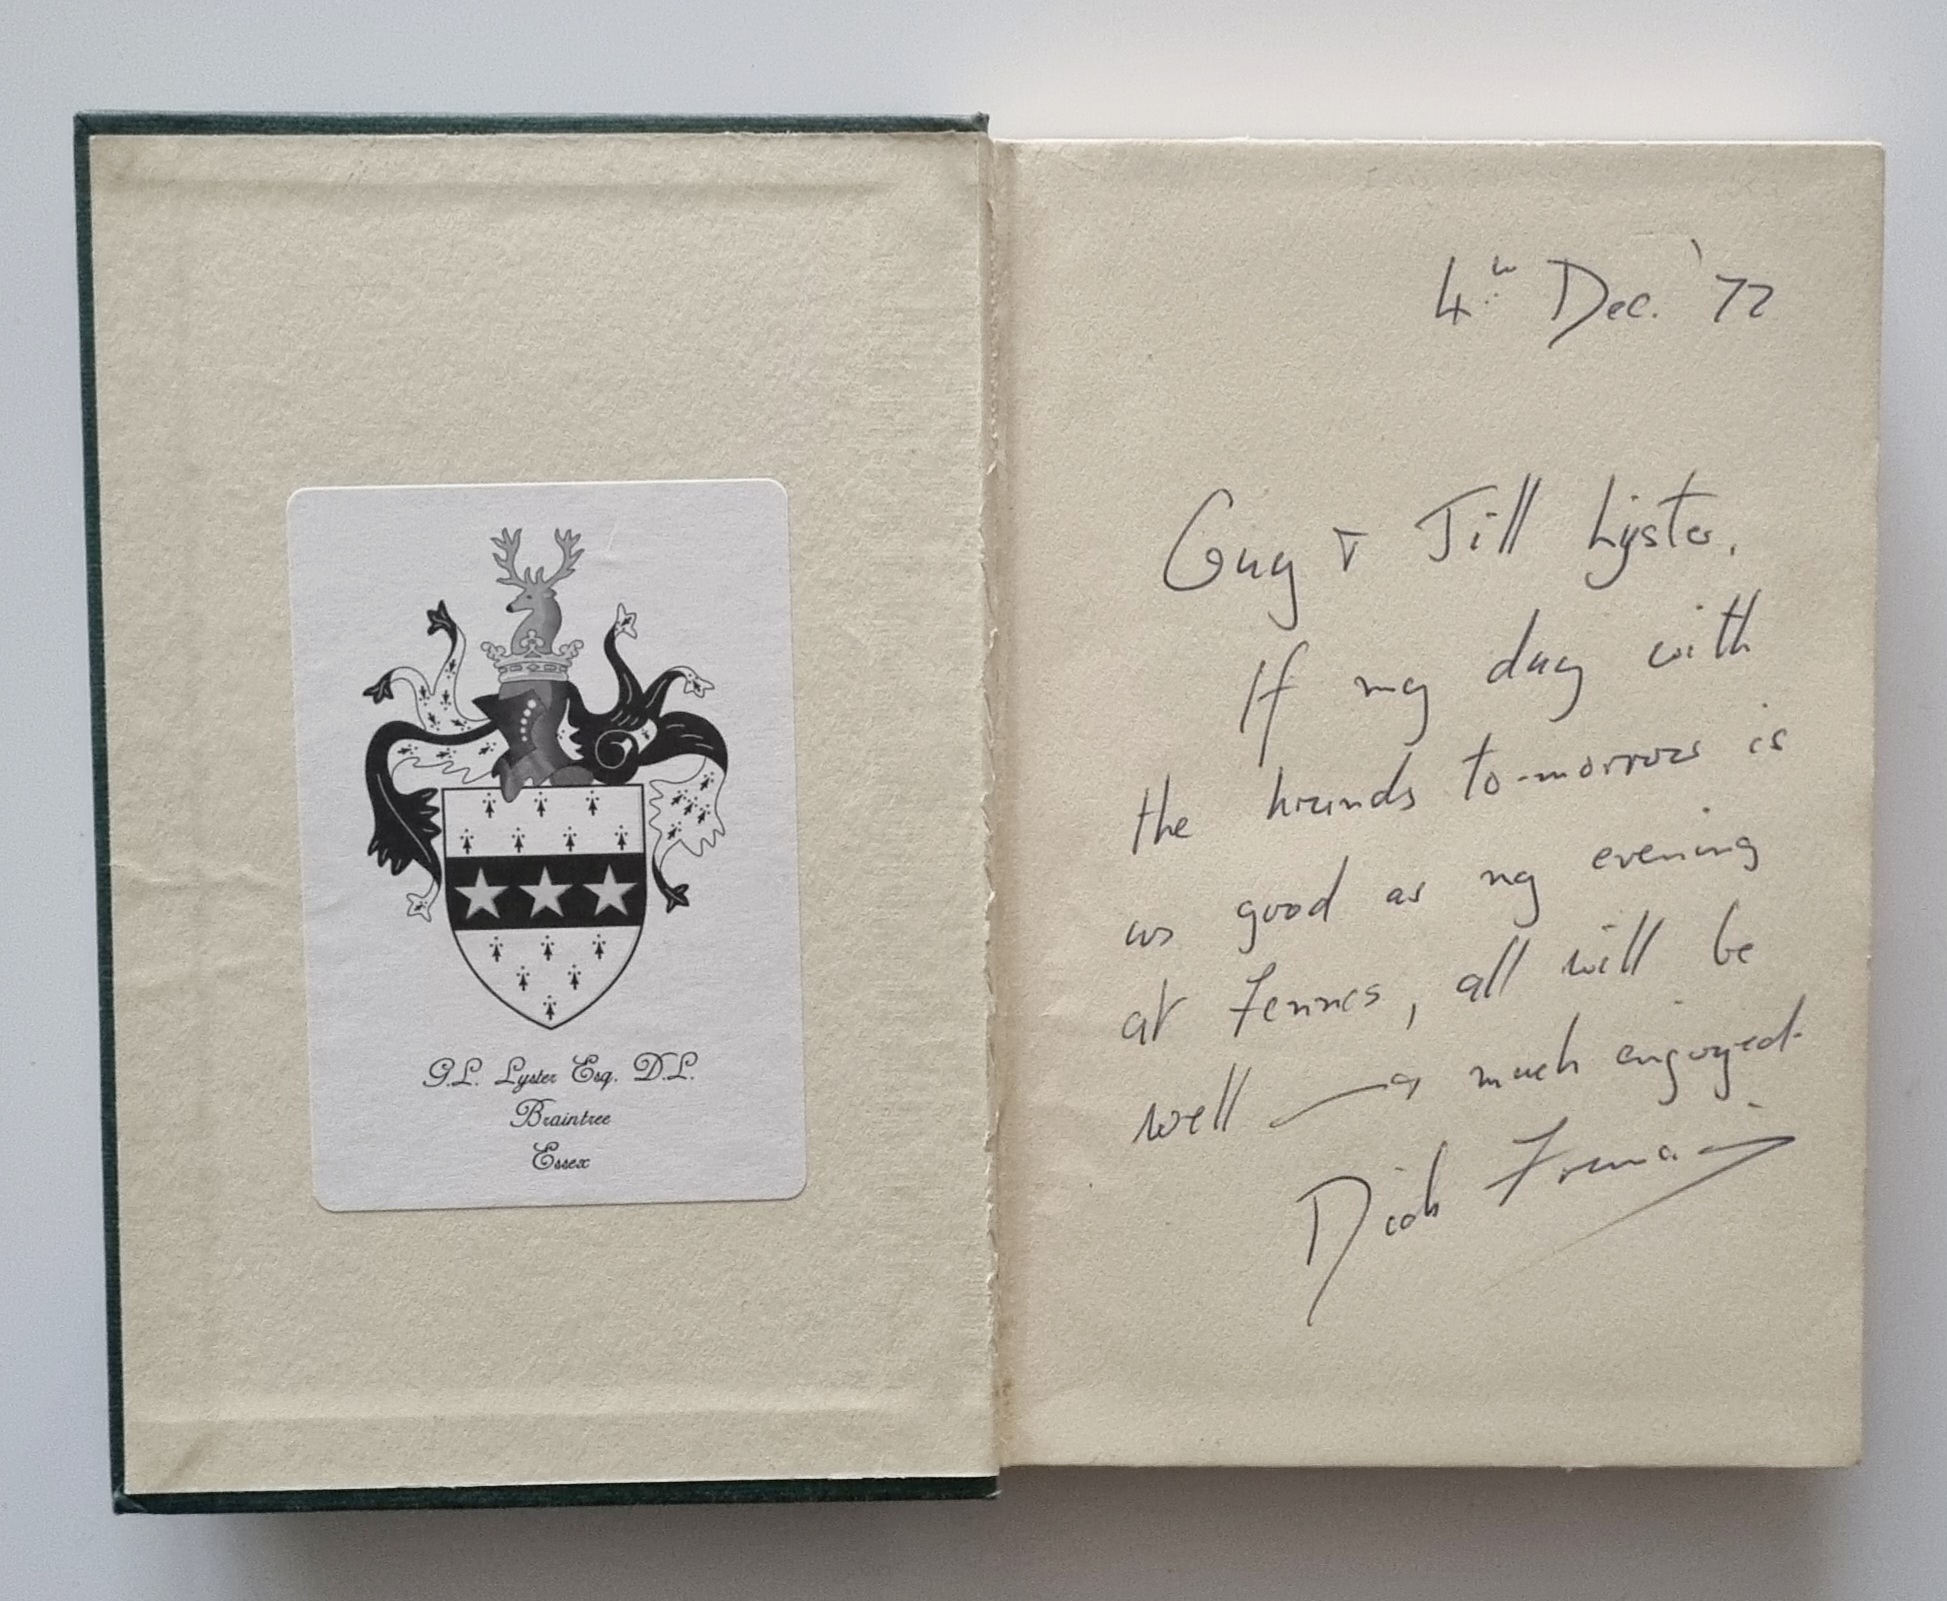 G.L. Lyster Esq. D.L.
Braintree
Essex
4th Dec. '72
Guy & Jill Lyster,
If my day with
the hounds to-morrow is
as good as my evening
at Fennes, all will be
well — & much enjoyed.
Dick Francis